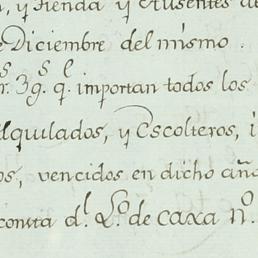 y Tienda y Ausentes de
Diciembre del mismo.
3g.s q.l importan todos los
Alquilados, y Escolteros,
vencidos en dicho año
consta d.l L.o de caxa N.o